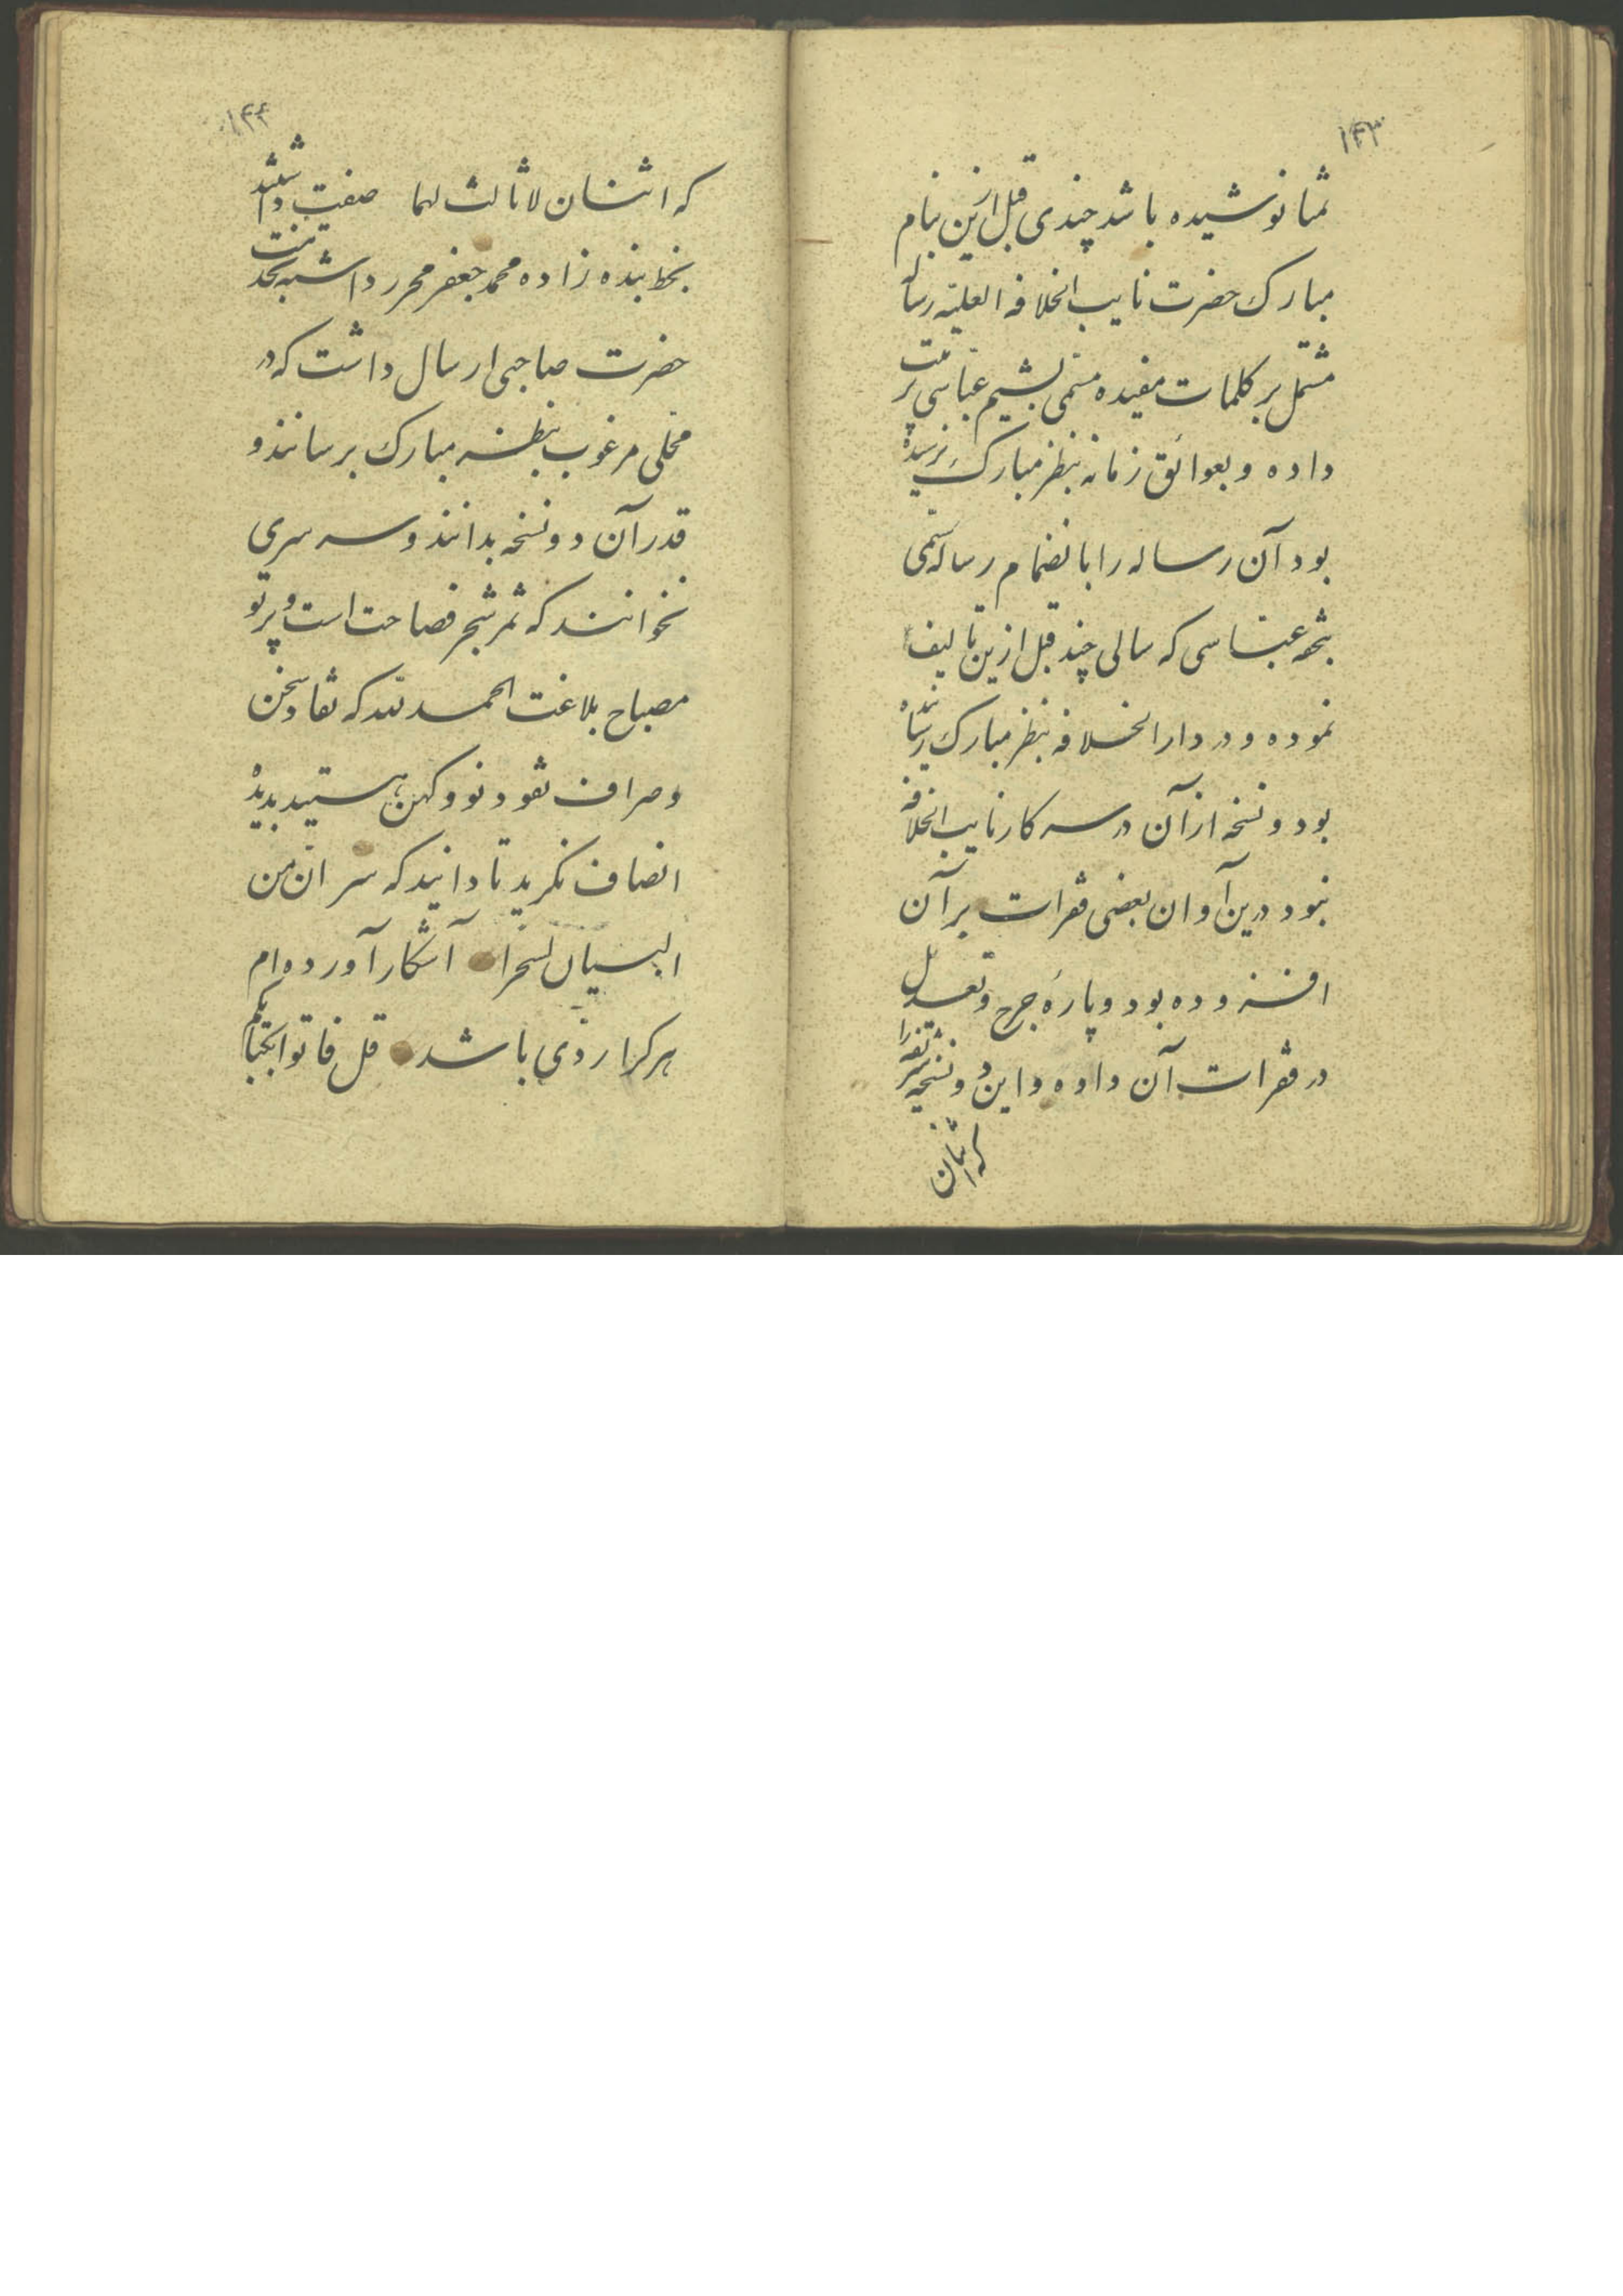 ۱۴۳
ثما نوشیده باشد چندی قبل ازین بنام
مبارک حضرت نایب الخلافه العلیّه رساله
مشتمل بر کلمات مفیده مسمّی بشیم عباسی ترتیب
داده و بعوائق زمانه بنظر مبارک نرسیده
بود آن رساله را بانضمام رساله مسمّی
بتحفه عبّاسی که سالی چند قبل ازین تالیف
نموده و در دار الخلافه بنظر مبارک رسانده
بود و نسخه از آن در سرکار نایب الخلافه
نبود درین آوان بعضی فقرات بر آن
افزوده بود و پارهٔ جرح و تعدیل
در فقرات آن داده و این دو نسخه
که اثنان
۱۴۴
که اثنان لا ثالث لهما صفت داشتند
بخط بنده زاده محمد جعفر محرر داشته بخدمت
حضرت صاحبی ارسال داشت که در
محلی مرغوب بنظر مبارک برسانند و
قدر آن دو نسخه بدانند و سرسری
نخوانند که ثمر شجر فصاحت است و پرتو
مصباح بلاغت الحمد لله که نقاد سخن
و صراف نقود نو و کهن هستید بدیده
انصاف نگرید تا دانید که سر انّ من
البیان لسحرا آشکار آورده‌ام
هر کرا ردّی باشد قل فاتوا بکتابکم